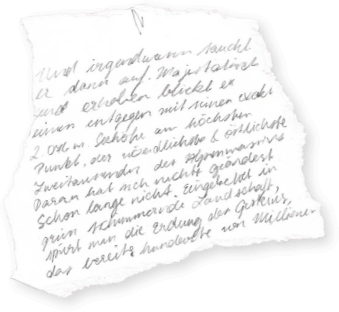 Und irgendwann taucht
er dann auf. Majestätisch
und erhaben blickt er
einem entgegen mit seinen exakt
2.00 m. Seehöhe am höchsten
Punkt, der nördlichste & östlichste
Zweitausender des Alpenmassivs
Daran hat sich nichts geändert
Schon lange nicht. Eingebettet in
grün schimmernde Landschaft,
spürt man die Erdung des
das bereits hunderte von Millionen